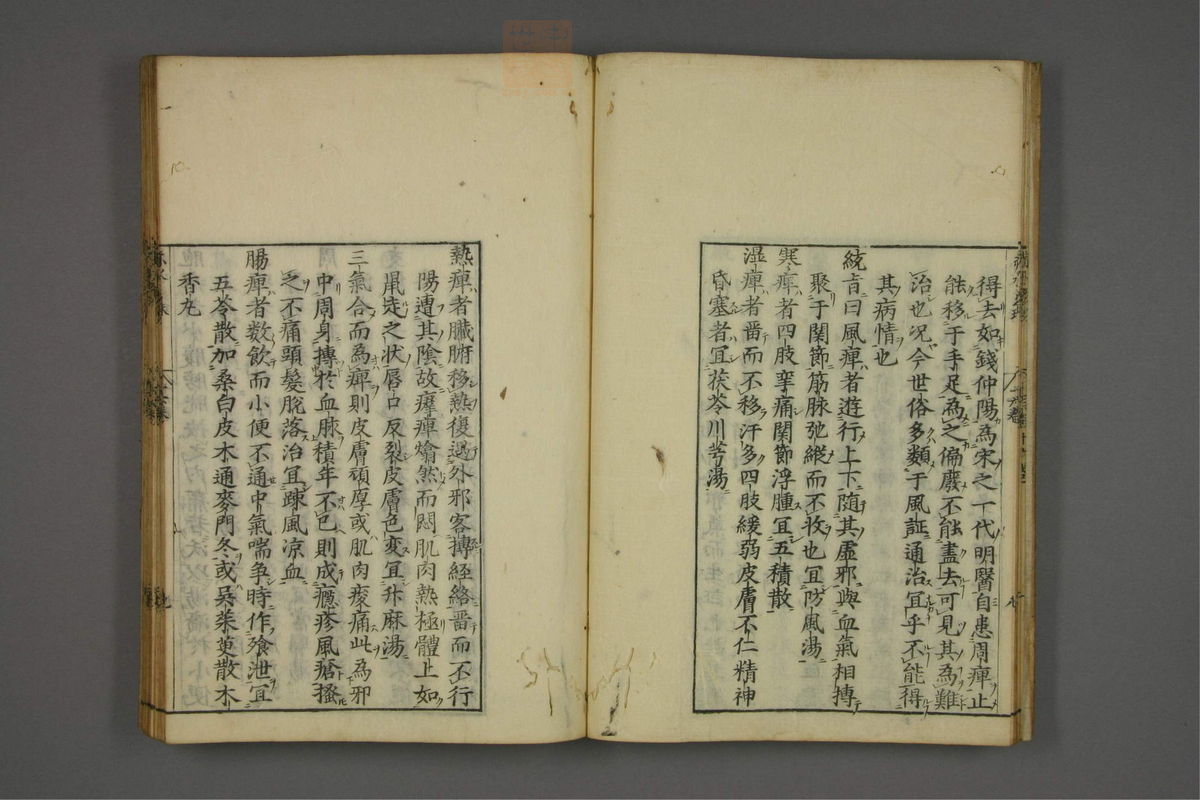 得去如錢仲陽為宋之一代明醫自患周痺止
能移于手足為之偏廢不能盡去可見其為難
治也况今世俗多類于風証通治宜乎不能得
其病情也
統旨曰風痺者遊行上下随其虛邪與血氣相搏
聚于関節筋脉弛縱而不收也宜防風湯
寒痺者四肢挛痛関節浮腫宜五積散
湿痺者畱而不移汗多四肢緩弱皮膚不仁精神
昏塞者宜茯苓川芎湯
熱痺者臟腑移熱復遇外邪客搏経絡畱而不行
陽遭其陰故㿏痺熻然而悶肌肉熱極體上如
鼠走之状唇口反裂皮膚色変宜升麻湯
三氣合而為痺則皮膚頑厚或肌肉痠痛此為邪
中周身搏於血脉積年不已則成癮疹風瘡搔
之不痛頭髮脫落治宜疎風凉血
腸痺者数飲而小便不通中氣喘争時作飱泄宜
五苓散加桑白皮木通麥門冬或吳茱萸散木
香丸